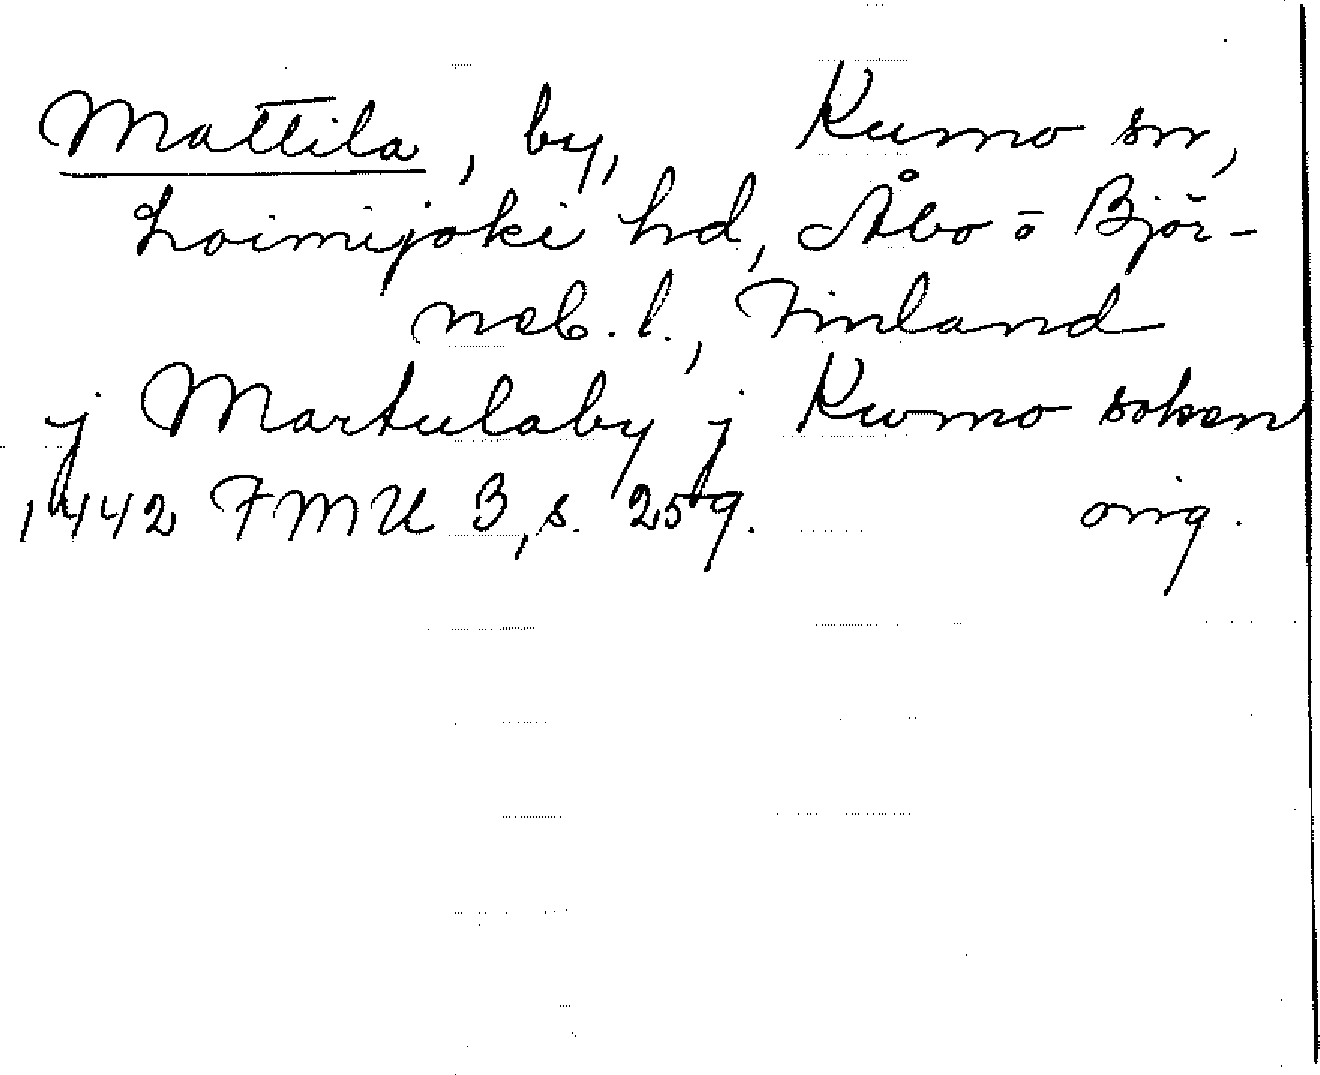 Mattila, by, Kumo sn,
Loimijoki hd, Åbo o Björ-
neb. l., Finland
j Martulaby j Kwmo soken
1442 FMU 3, s. 259. orig.